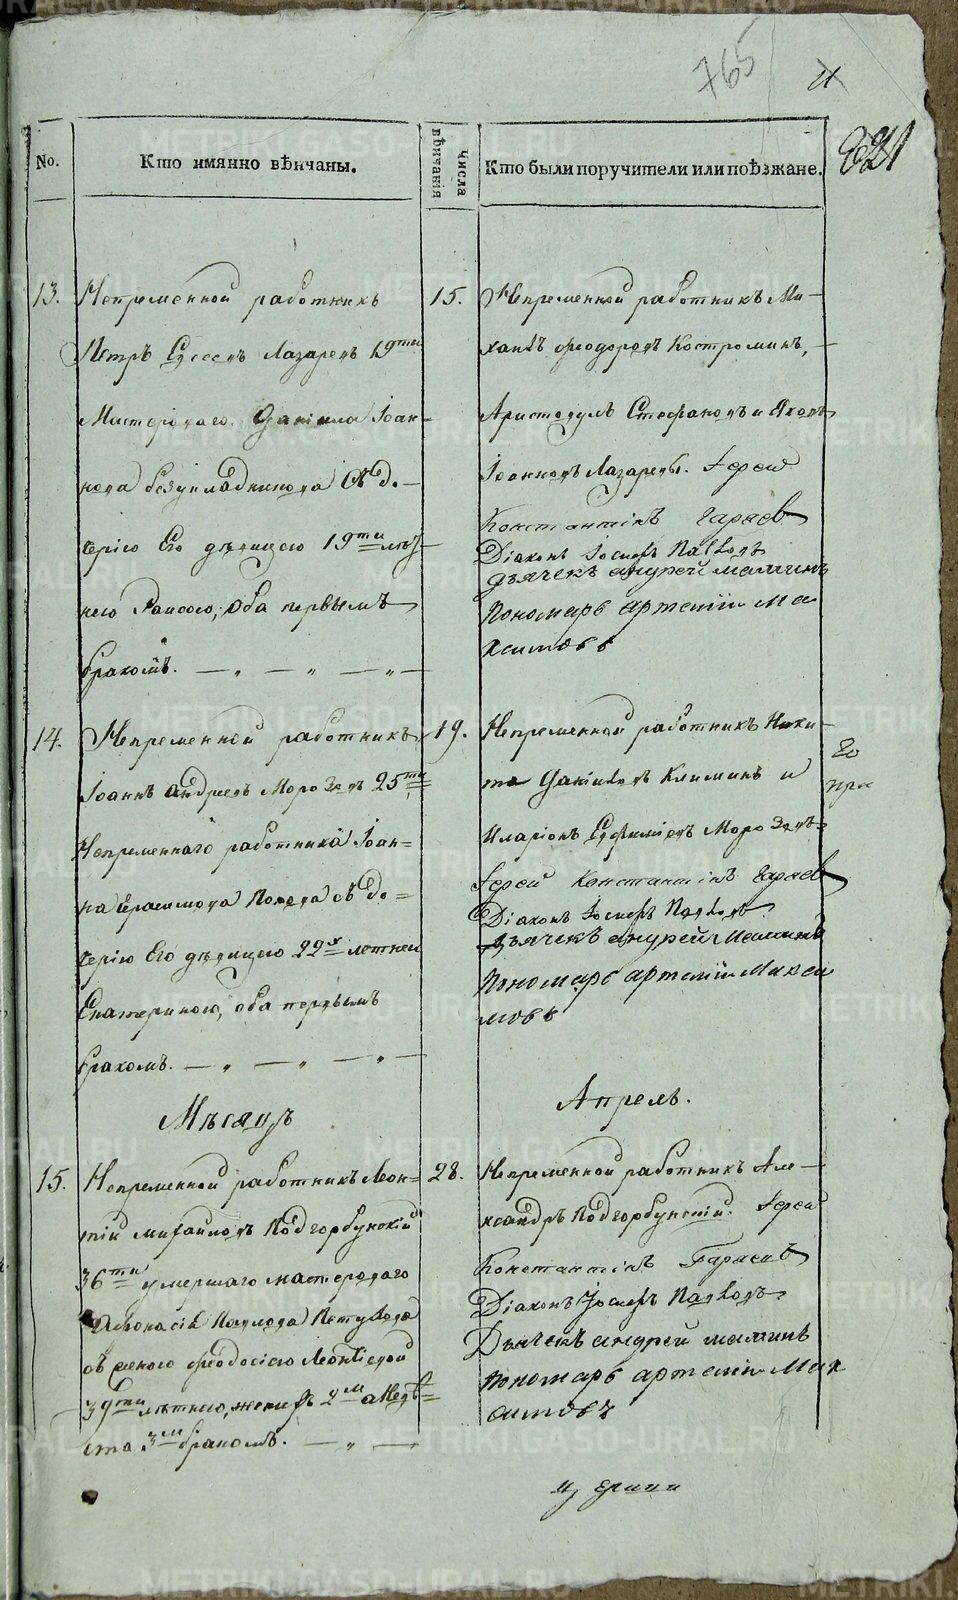 765
821
No.
Кто имянно вѣнчаны.
Числа вѣнчанія
Кто были поручители или поѣзжане.
13.
Непременной работникъ
Петръ Лазаревъ 19ти
Мастероваго Даніила Іоан-
нова съ до-
черію Его дѣвицею 19ти лѣт-
нею оба первымъ
бракомъ. — „ — „ — „ —
15.
Непременной работникъ Ми-
хаилъ Ѳеодоровъ Костроминъ, —
Стефановъ и Яковъ
Іоанновъ Лазаревы. Іерей
Константинъ Гаряевъ
Діаконъ Іосифъ Павловъ
Дьячекъ андрей маминъ
Пономарь артемій Ма
ксимовъ
14.
Непременной работникъ
Іоаннъ Андреевъ Морозовъ 25ти
Непременнаго работника Іоан-
на Герасимова Попова съ до=
черію Его дѣвицею 22х летнею
Екатериною, оба первымъ
бракомъ. — „ — „ — „ —
19.
Непременной работникъ Ники-
та Даниловъ Климинъ и
Иларіонъ Ефимiевъ Морозовъ
Іерей Константинъ Гаряевъ
Діаконъ Іосифъ Павловъ
Дьячекъ андрей Маминъ
Пономарь артемій Макси
мовъ
Мѣсяцъ
Апрель.
15.
Непременной работникъ Леон=
тій михайловъ Подгорбунскій
36ти умершаго мастероваго
Афонасія Петухова
съ женою Ѳеодосіею Леонтіевой
39ти лѣтнею, женихъ 2м а невѣ=
ста 3м бракомъ. — „ —
28.
Непременной работникъ Але-
ксандръ Подгорбунскій. Іерей
Константинъ Гаряевъ
Діаконъ Іосифъ Павловъ
Дьячекъ андрей маминъ
Пономарь артемій Мак
симовъ